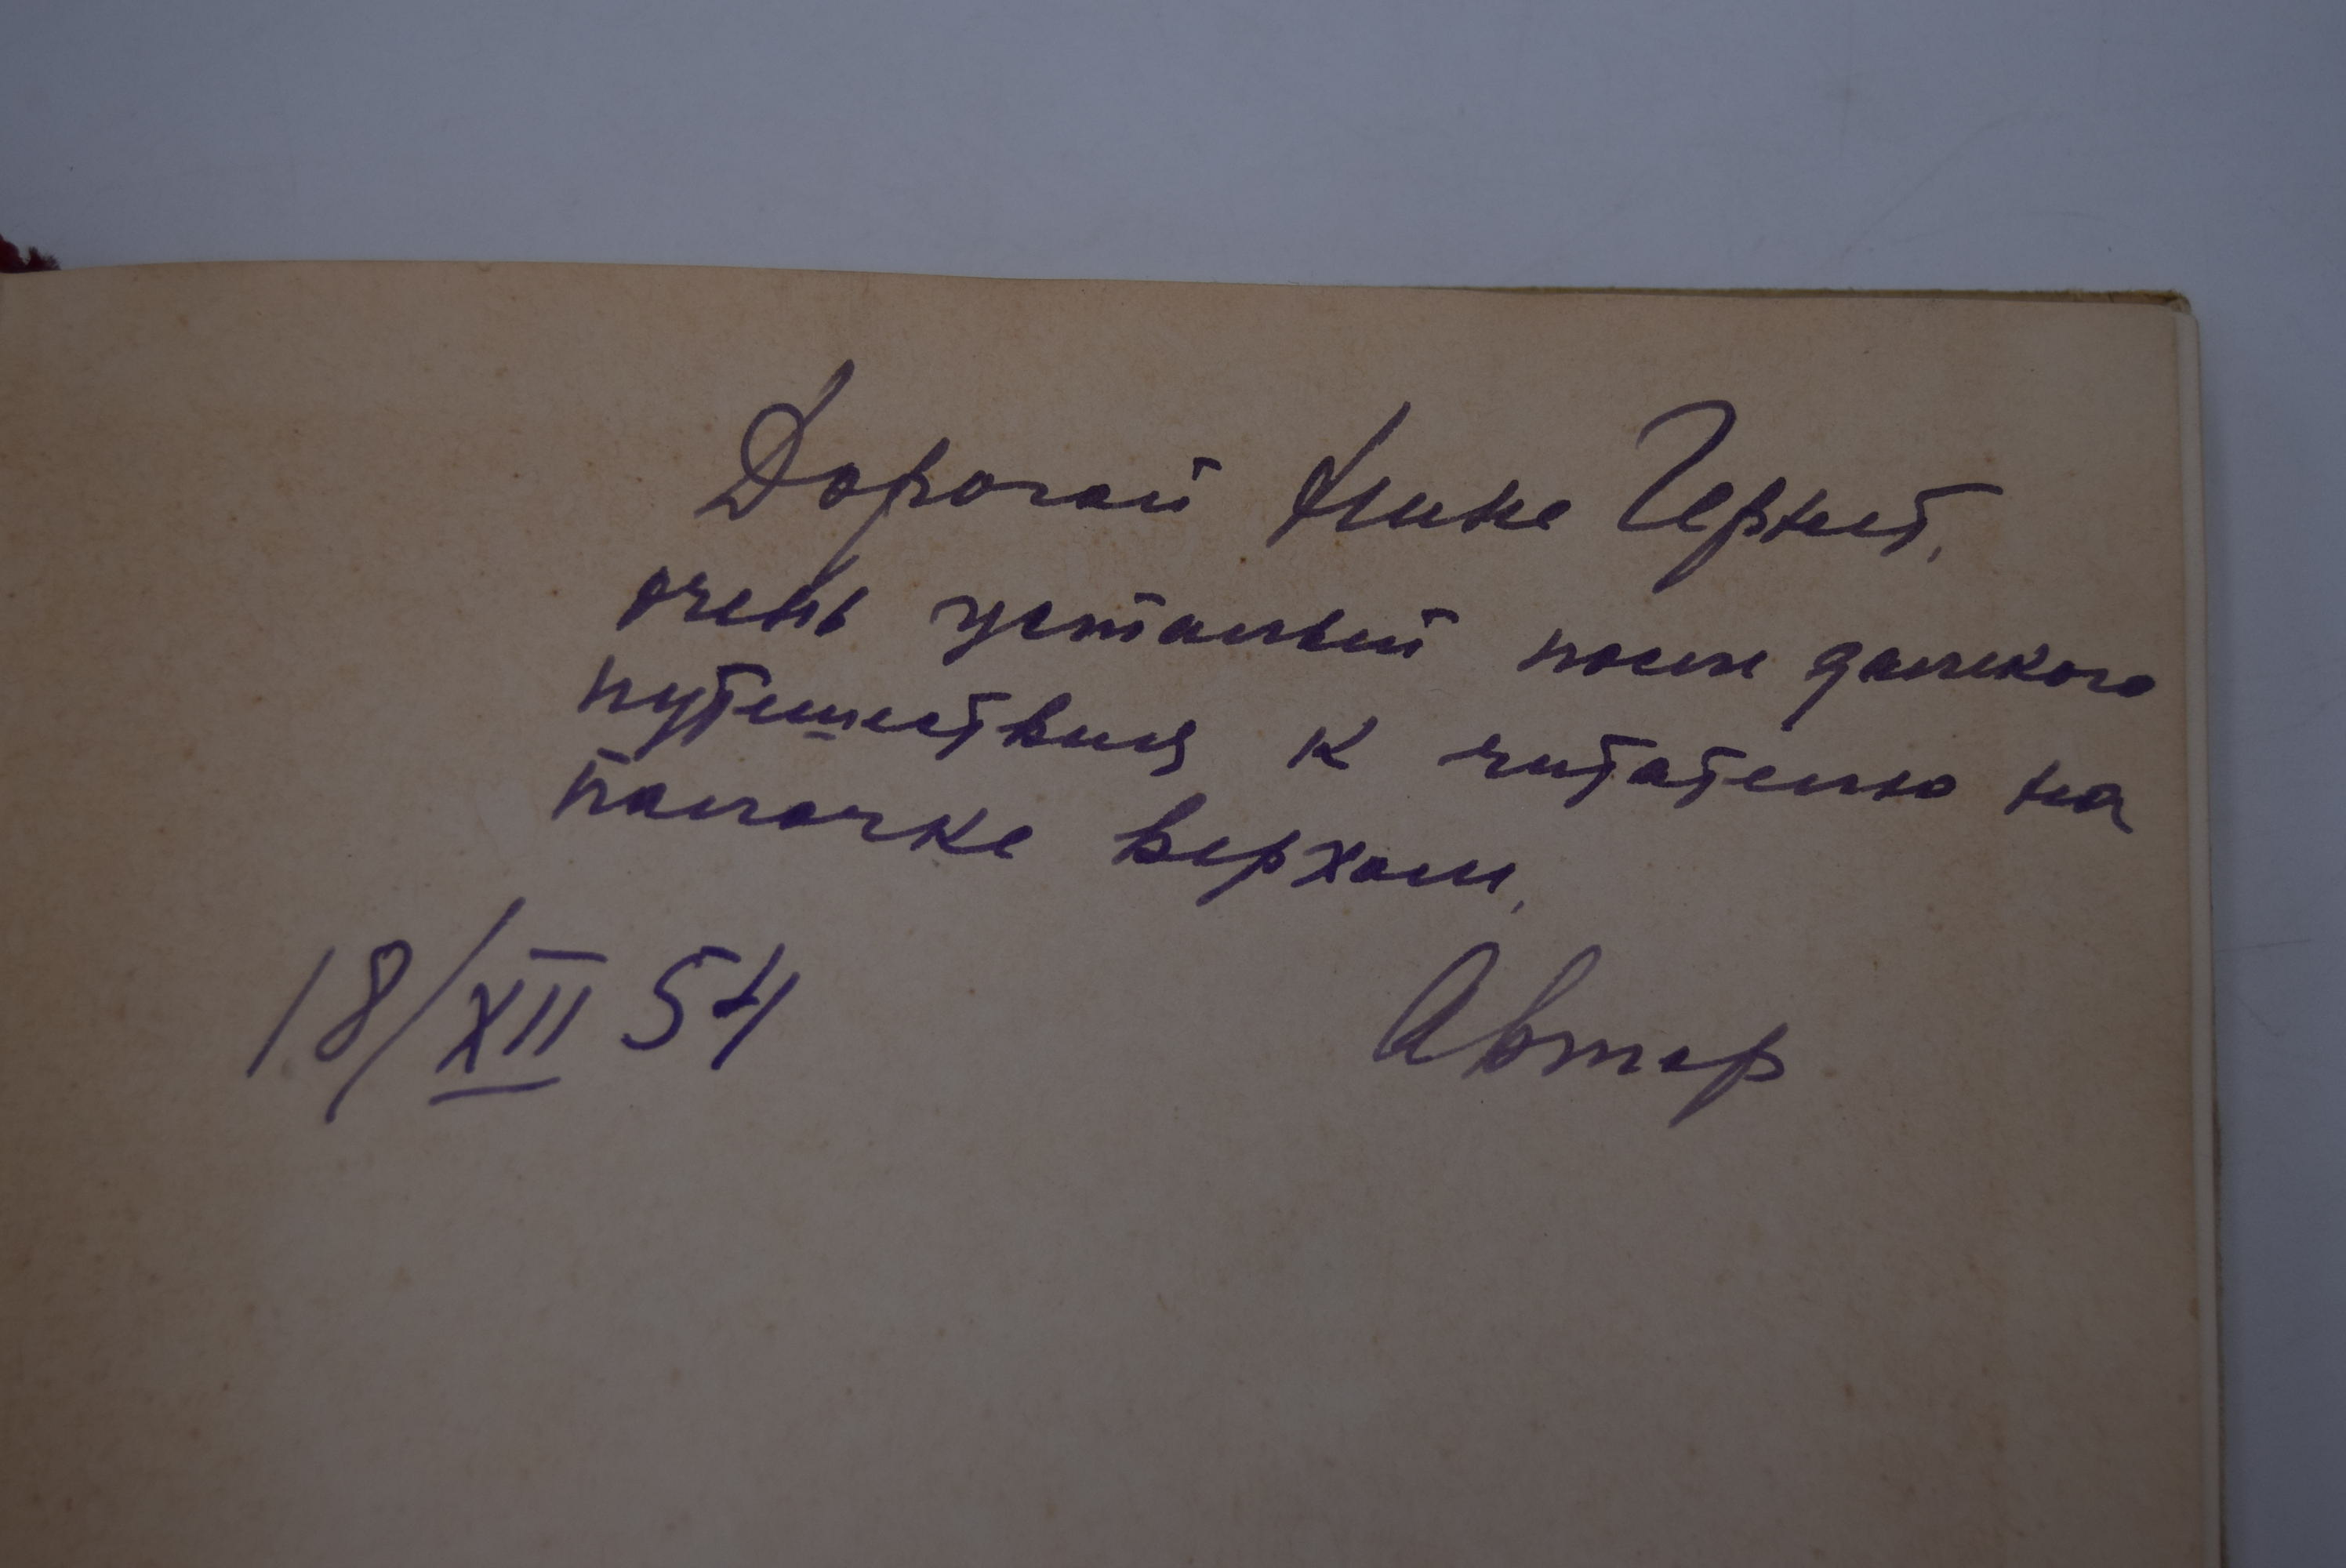 Дорогой Нине Гернет,
очень усталый после далекого
путешествия к читателю на
палочке верхом,
Автор
18/XII 54